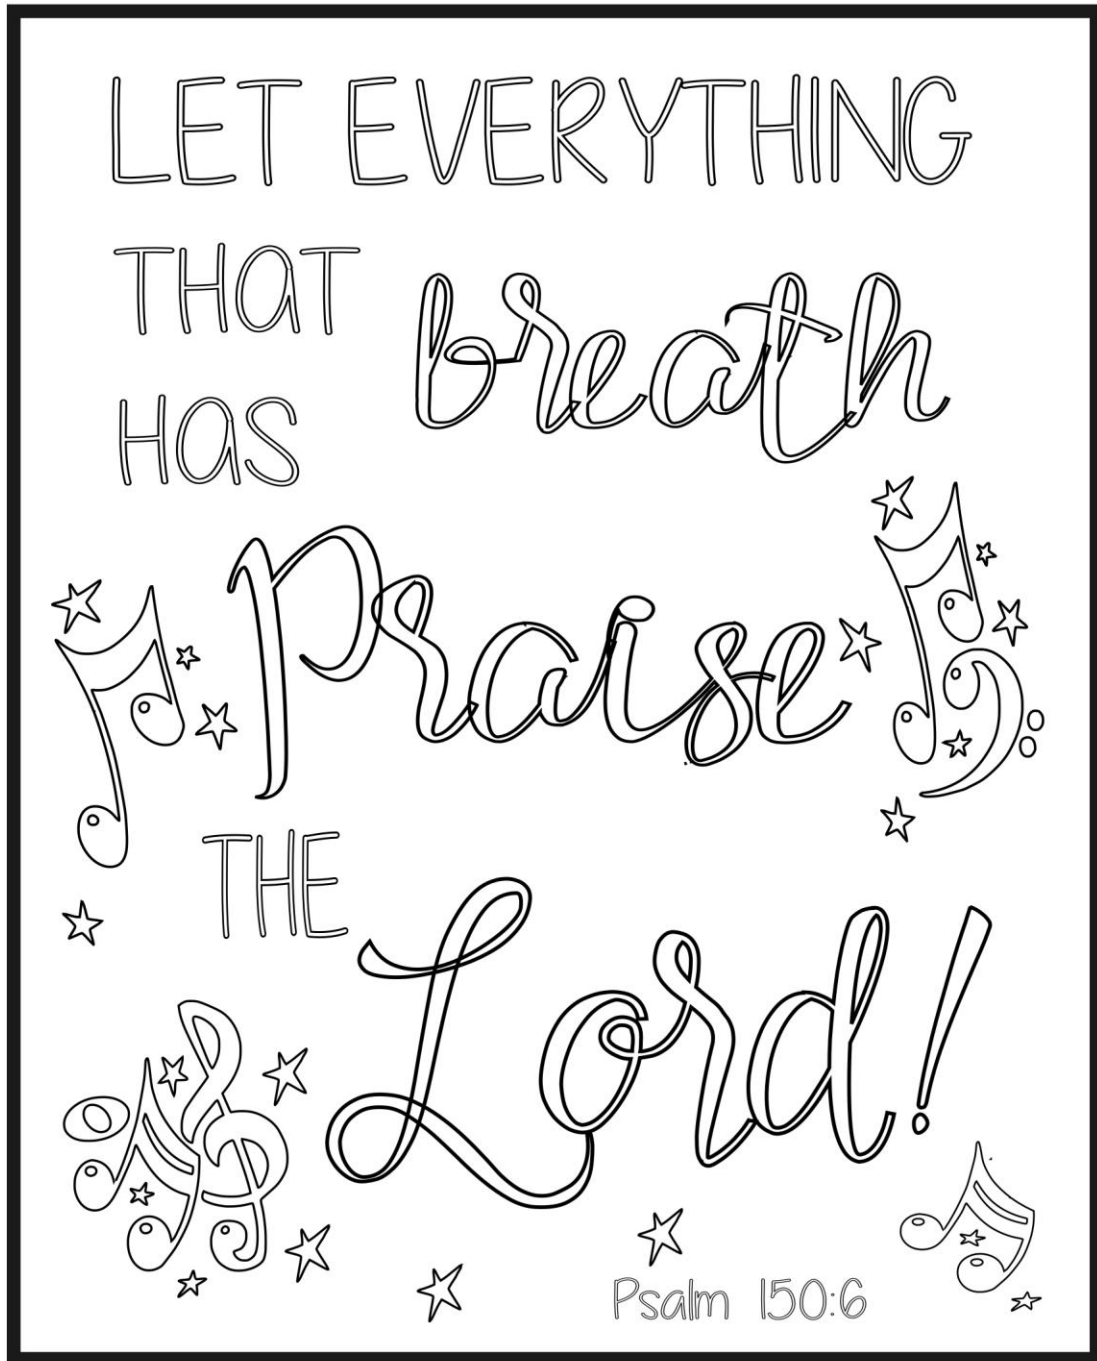 LET EVERYTHING
THAT breath
HAS
Praise
THE
Lord!
Psalm 150:6